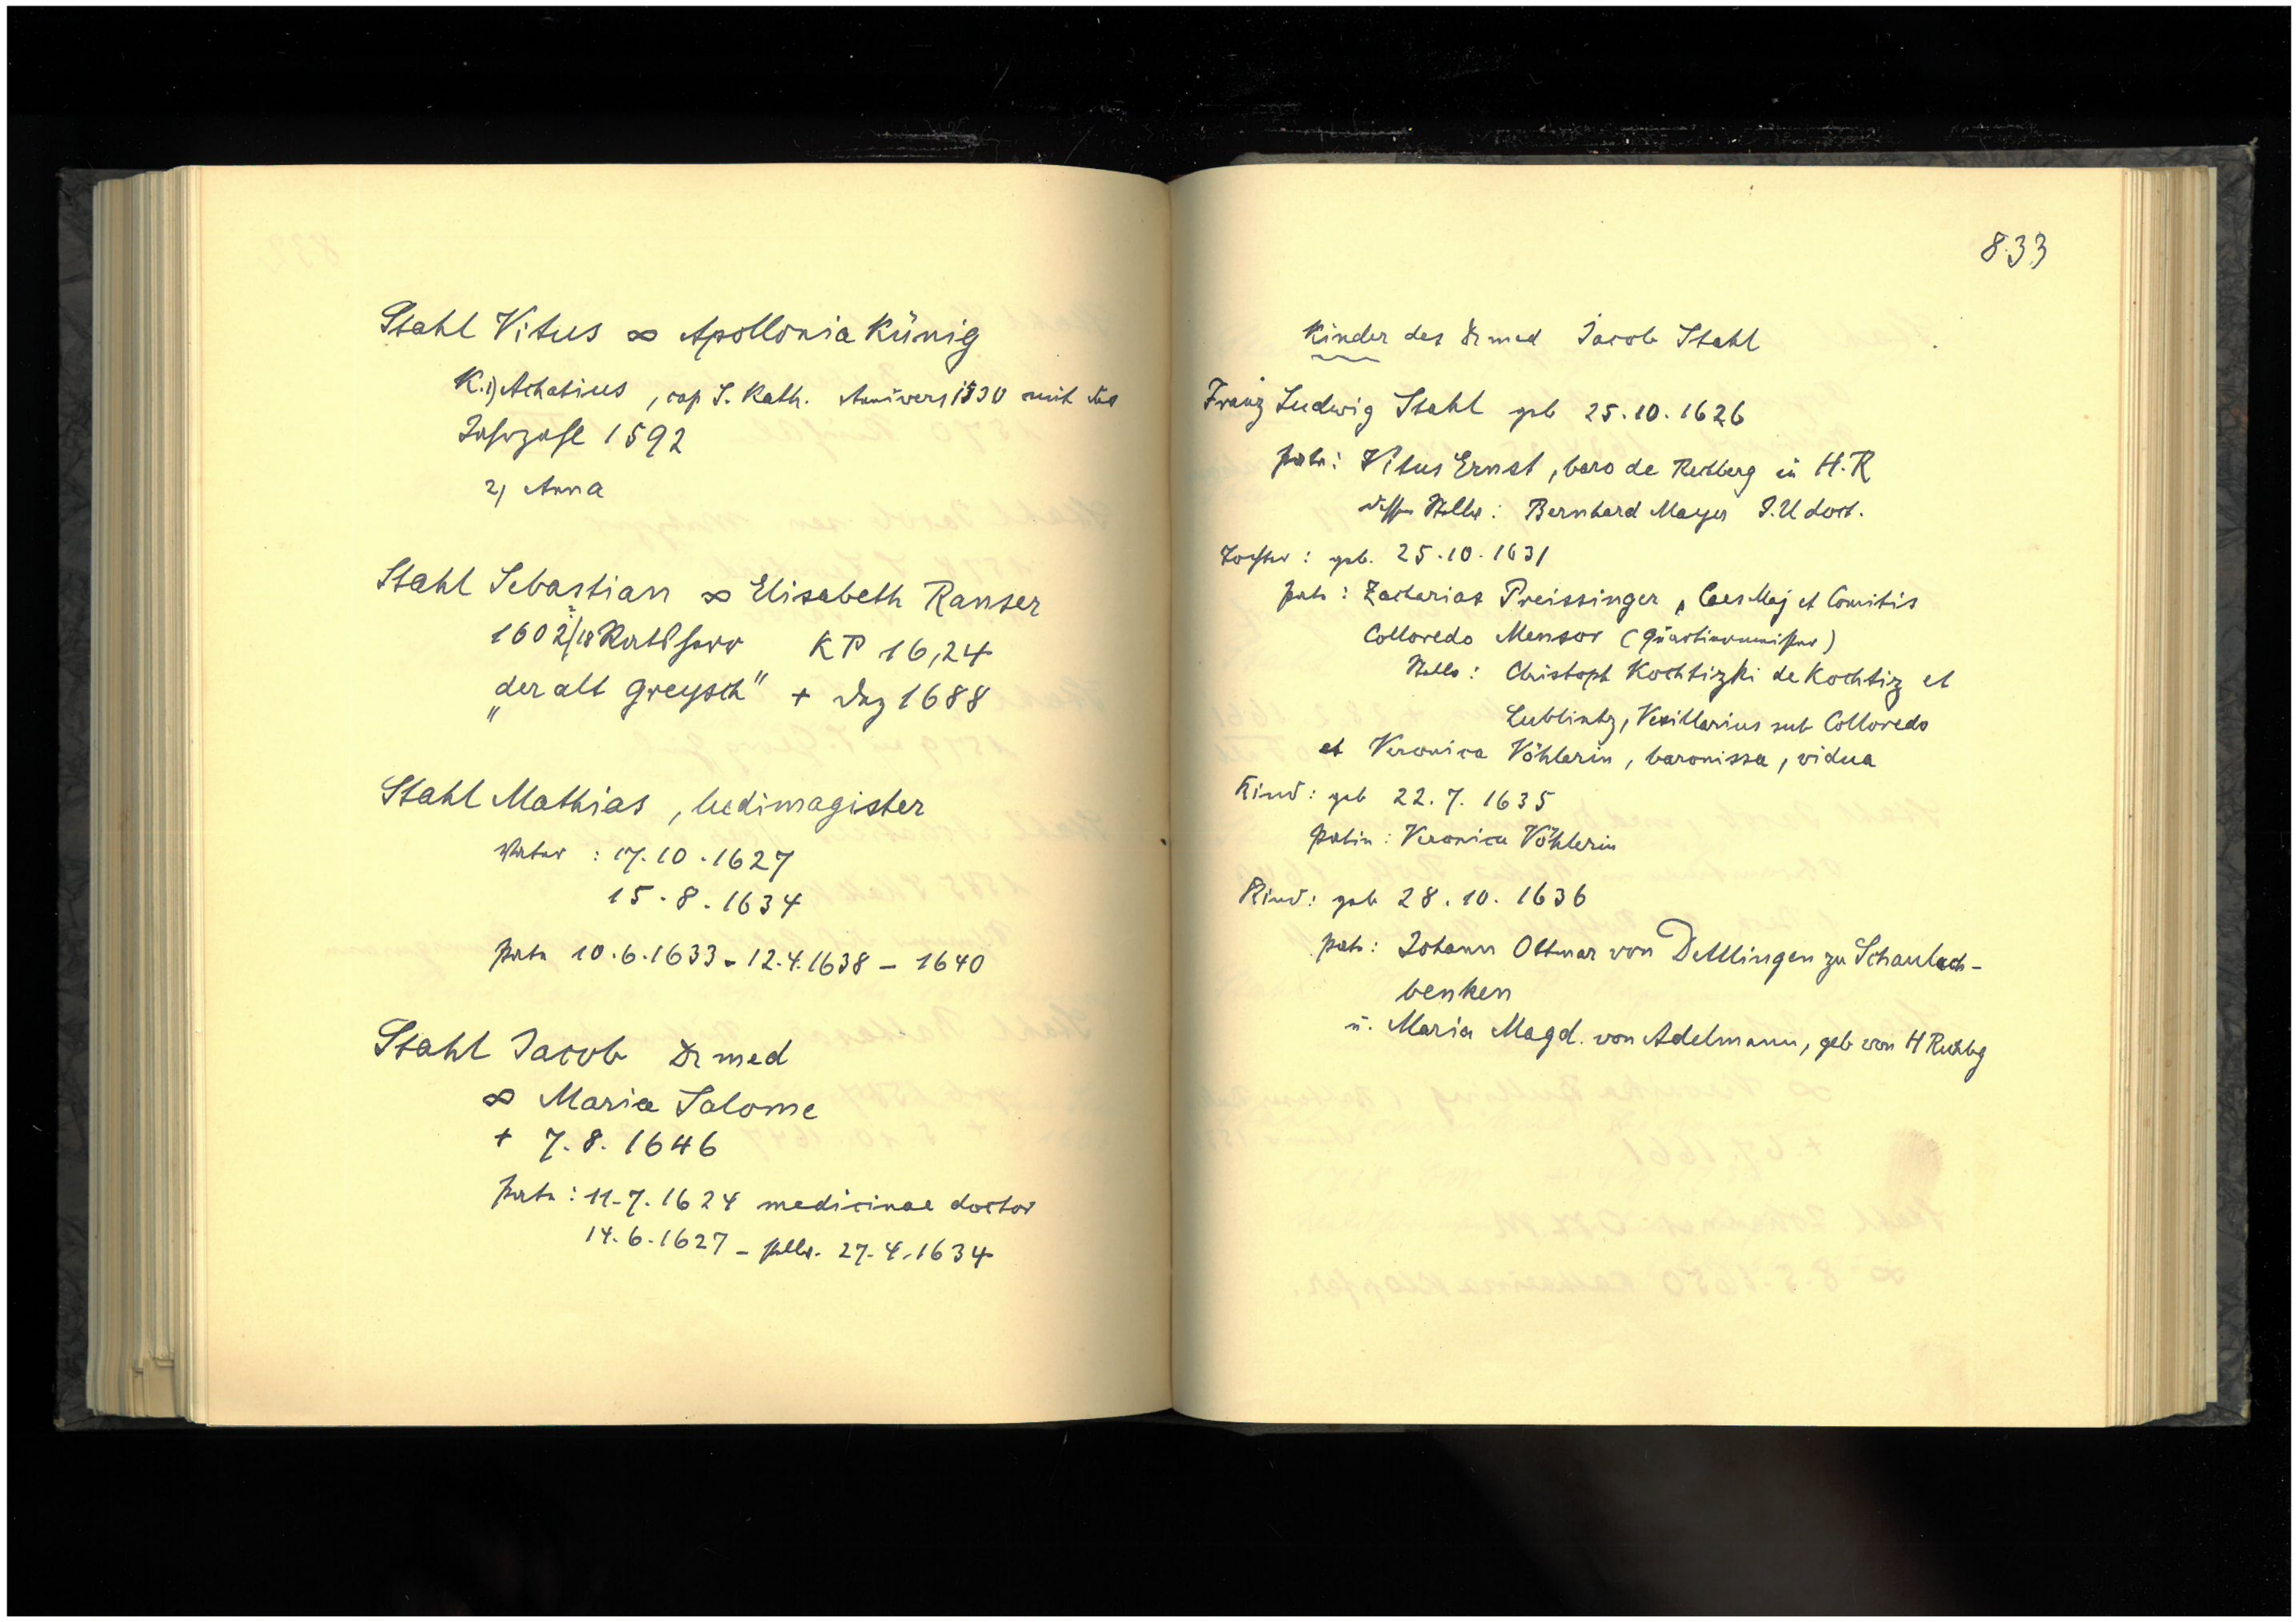 Stahl Vitus ∞ Apollonia Künig
K. 1) Achatius, cap S. Kath. Anivers 1530 mit der
Jahrzahl 1592
2) Anna
Stahl Sebastian ∞ Elisabeth Ranser
1602/18 Rathherr KP 16,24
„der alt Greysch" + Dez 1688
Stahl Mathias, ludimagister
Vater: 17.10.1627
15.8.1634
Pate 10.6.1633 - 12.4.1638 - 1640
Stahl Jacob Dr med
∞ Maria Salome
+ 7.8.1646
Pate: 11.7.1624 medicinae doctor
14.6.1627 - stellv. 27.4.1634
833
Kinder des Dr med Jacob Stahl
Franz Ludwig Stahl geb 25.10.1626
Pate: Vitus Ernst, baro de Rechberg in H.R
dessen Stellv: Bernhard Mayer J.U doct.
Tochter: geb. 25.10.1631
Pate: Zacharias Preissinger, Caes Maj et Comitis
Colloredo Mensor (Quartiermeister)
Stellv: Christoph Kochtizki de Kochtiz et
Lublintz, Vexillarius sub Colloredo
et Veronica Vöhlerin, baronissa, vidua
Kind: geb 22.7.1635
Patin: Veronica Vöhlerin
Kind: geb 28.10.1636
Pate: Johann Ottmar von Dettlingen zu Schaulach-
benken
u. Maria Magd. von Adelmann, geb von H Rechbg